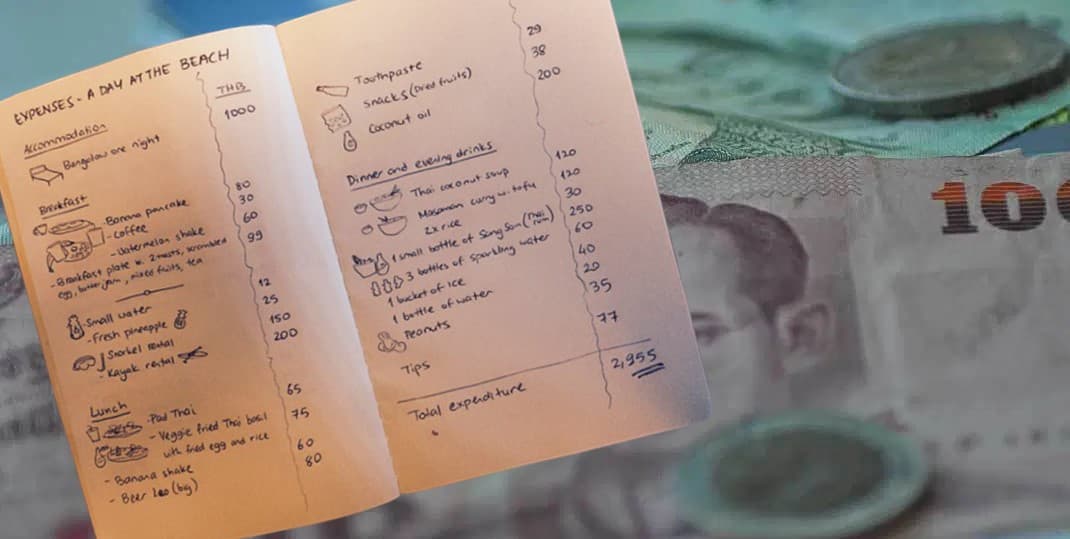 EXPENSES - A DAY AT THE BEACH
THB
Accommodation
Bangalow one night 1000
Breakfast
- Banana pancake 80
- Coffee 30
- Watermelon shake 60
- Breakfast plate w. 2 toasts, scrambled 99
egg, butter, jam, mixed fruits, tea
- Small water 12
- Fresh pineapple 25
- Snorkel rental 150
- Kayak rental 200
Lunch
- Pad Thai 65
- Veggie fried Thai basil 75
with fried egg and rice
- Banana shake 60
- Beer Leo (big) 80
Toothpaste 29
Snacks (Dried fruits) 38
Coconut oil 200
Dinner and evening drinks
Thai coconut soup 120
Masaman curry w. tofu 120
2x rice 30
1 small bottle of Sang Som (Thai rum) 250
3 bottles of sparkling water 60
1 bucket of ice 40
1 bottle of water 20
Peanuts 35
Tips 77
Total expenditure 2,955
10